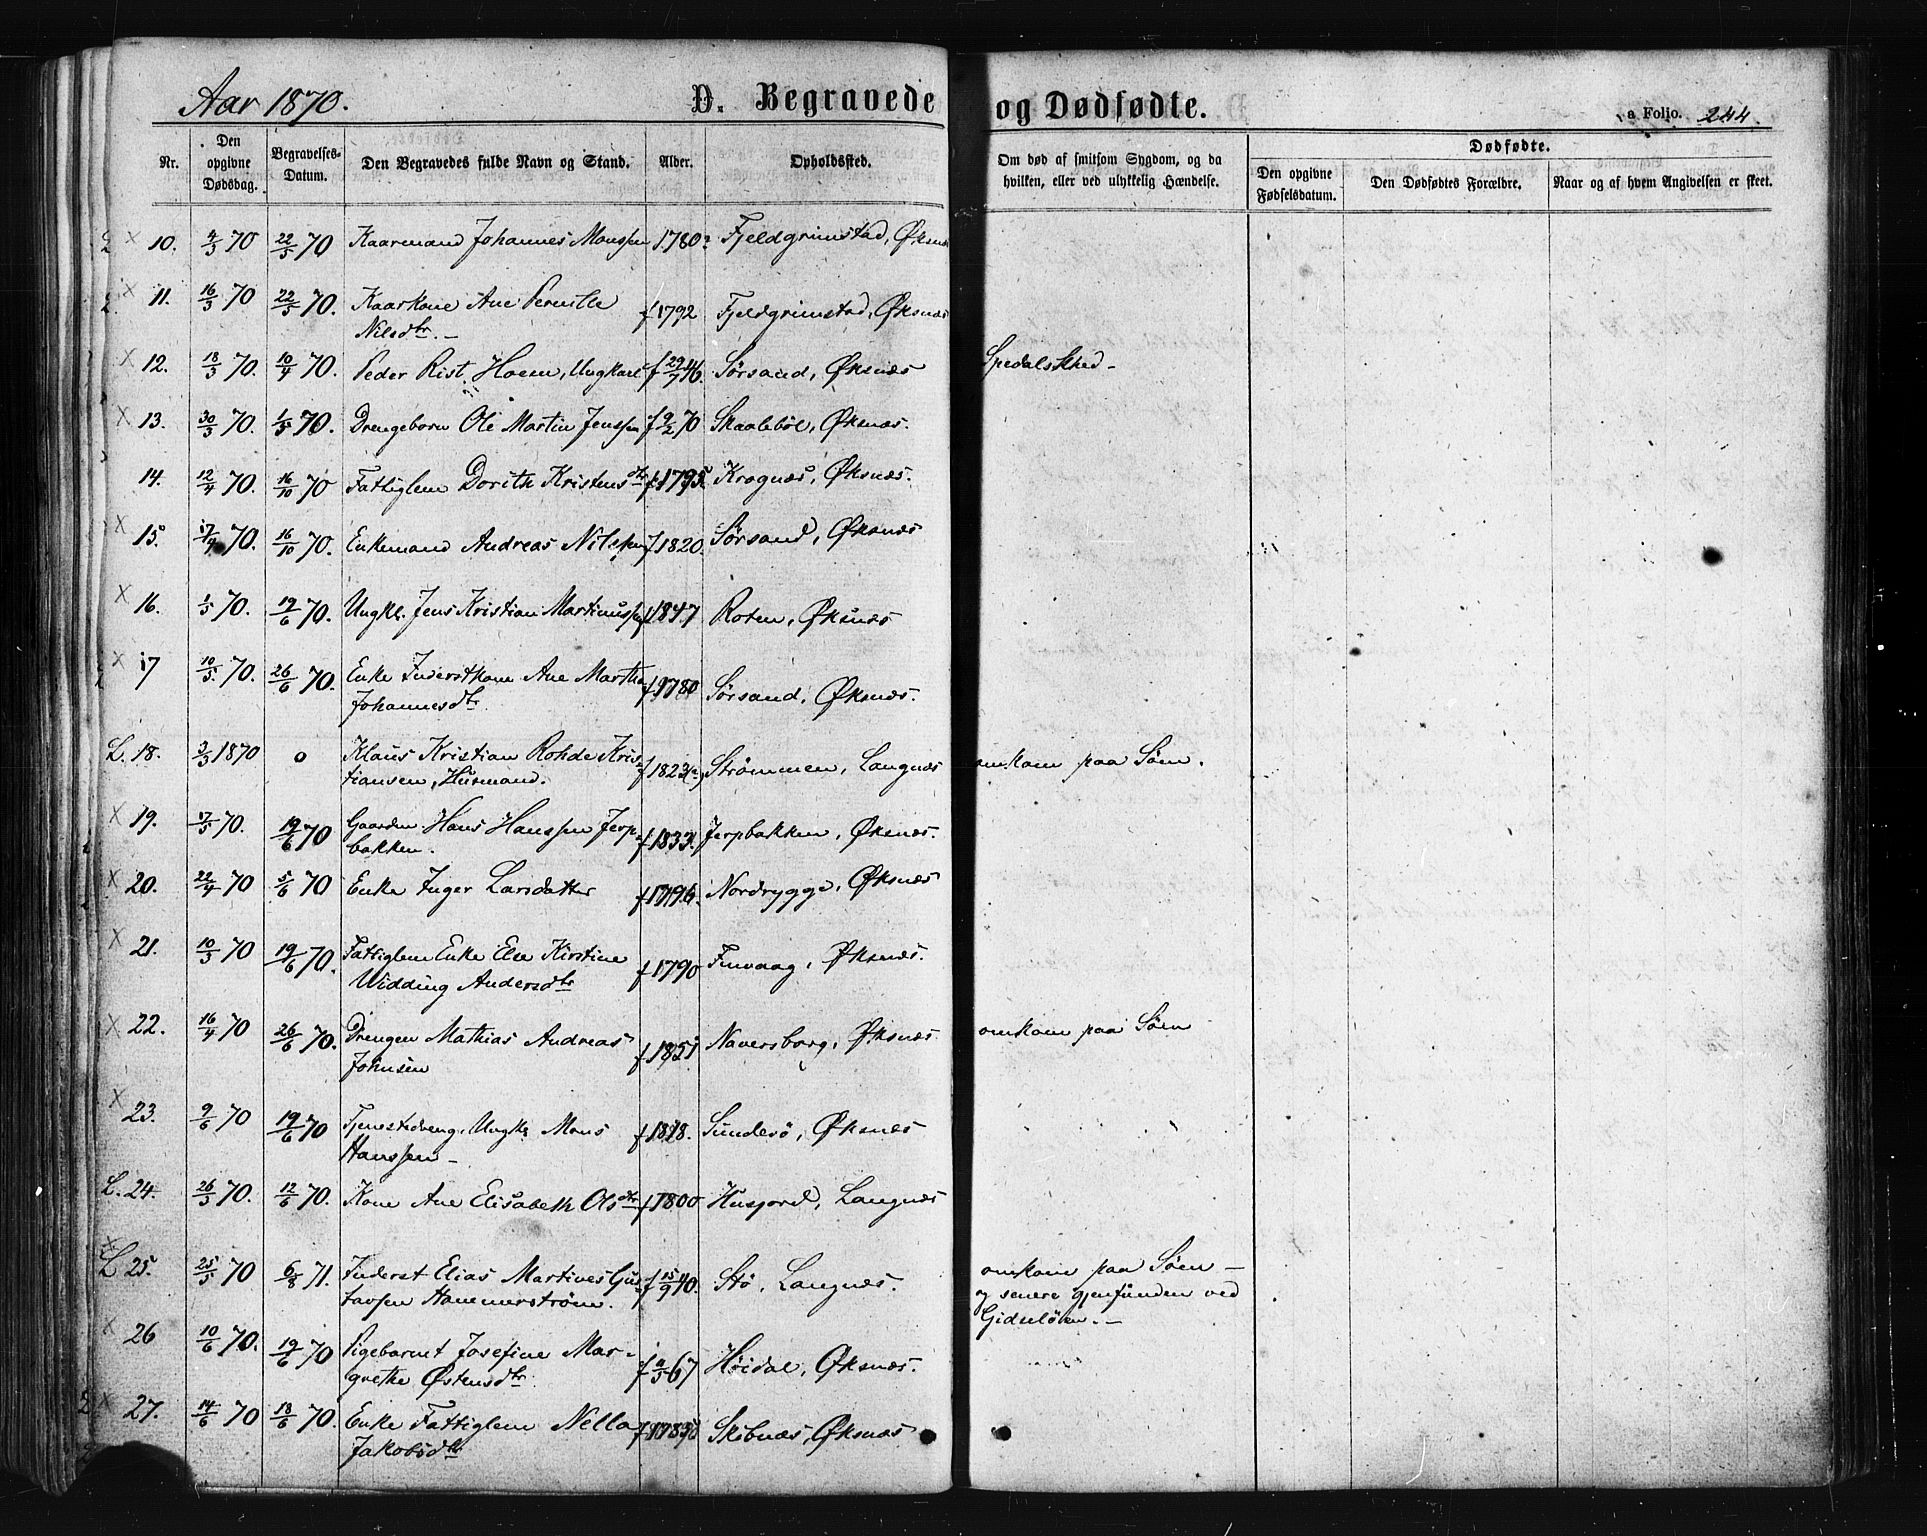 Aar 1870. D. Begravede og Dødfødte. a Folio. 244.
Nr. Den opgivne Dødsdag. Begravelses-Datum. Den Begravedes fulde Navn og Stand. Alder. Opholdssted. Om død af smitsom Sygdom, og da hvilken, eller ved ulykkelig Hændelse. Dødfødte. Den opgivne Fødselsdatum. Den Dødfødtes Forældre. Naar og af hvem Angivelsen er skeet.
10. 4/3 70 22/5 70 Kaarmand Johannes Monssen 1780 Fjeldgrimstad, Øksnæs
11. 16/3 70 22/5 70. Kaarkone Ane Pernille f 1792 Fjeldgrimstad, Øksnæs
Nilsdtr. –
12. 18/3 70. 10/4 70. Peder Rist Hoem, Ungkarl f 29/7 46. Sørsand, Øksnæs Spedalskhed –
13. 30/3 70. 1/5 70. Drengebarn Ole Martin Jenssen f 9/2 70 Skaalebøl, Øksnæs.
14. 12/4 70. 16/10 70 Fattiglem Dorith Kristensdtr f 1795. Kragnæs, Øksnæs.
15. 17/4 70. 16/10 70. Enkemand Andreas Nilssen f 1820. Sørsand, Øksnæs
16. 1/5 70. 19/6 70. Ungkl. Jens Kristian Martinussen f 1847 Roten, Øksnæs
17 10/5 70. 26/6 70. Enke Inderstkone Ane Martha f 1780 Sørsand, Øksnæs.
Johannesdtr.
L. 18. 3/3 1870 o Klaus Kristian Rohde Kris- f 1823 Strømmen, Langnæs omkom paa Søen.
tiansen, Husmand.
19. 17/5 70. 19/6 70 Gaardm. Hans Hanssen Jerp- f 1833. Jerpbakken, Øksnæs.
bakken.
20. 22/4 70 5/6 70 Enke Inger Larsdatter f 1796. Nordrygge, Øksnæs
21. 10/5 70 19/6 70. Fattiglem Enke Else Kirstine f 1790 Finvaag, Øksnæs.
Widding Andersdtr
22. 16/4 70 26/6 70. Drengen Mathias Andreas f 1851 Naversborg, Øksnæs omkom paa Søen
Johnsen
23. 9/6 70 19/6 70 Tjenestedreng, Ungkl. Mons f 1818. Sundsø, Øksnæs
Hanssen –
L. 24. 26/3 70. 12/6 70. Kone Ane Elisabeth Olsdtr f 1800 Husjord, Langnæs
L 25. 25/5 70 6/8 71. Inderst Elias Martines Gus- f 15/9 40. Stø, Langnæs. omkom paa Søen –
tavsen Hammerstrøm. og senere gjenfunden ved
Gidsløen. –
26 10/6 70. 19/6 70 Pigebarnet Josefine Mar- f 67 Høidal, Øksnæs.
grethe Østensdtr.
27. 14/6 70 18/6 70. Enke Fattiglem Nella Skibnæs, Øksnæs
Jakobsdtr